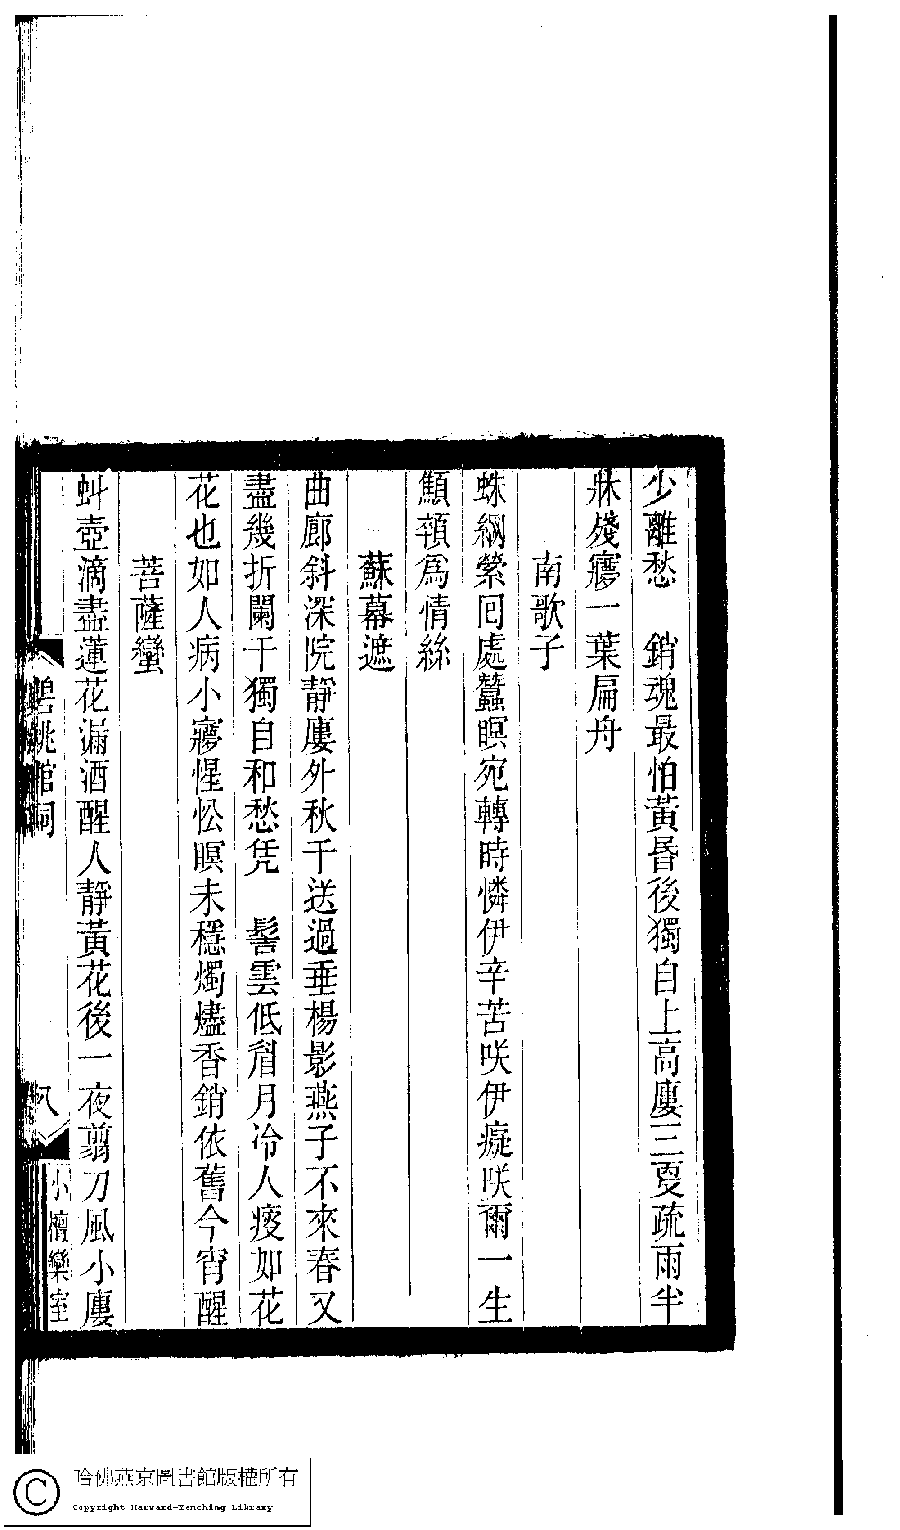 少離愁　銷魂最怕黃昬後獨自上高廔三更疏雨半
牀殘㝱一葉扁舟
南歌子
蛛網縈回處蠶瞑宛轉時憐伊辛苦咲伊癡咲爾一生
顦顇爲情絲
蘇幕遮
曲廊斜深院靜廔外秋千送過垂楊影燕子不來春又
盡幾折闌干獨自和愁凭　髻雲低眉月冷人瘦如花
花也如人病小㝱惺忪瞑未穩燭燼香銷依舊今宵醒
菩薩蠻
虯壺滴盡蓮花漏酒醒人靜黃花後一夜翦刀風小廔
碧桃館詞
八
小檀欒室
哈佛燕京圖書館版權所有
Copyright Harvard-Yenching Library